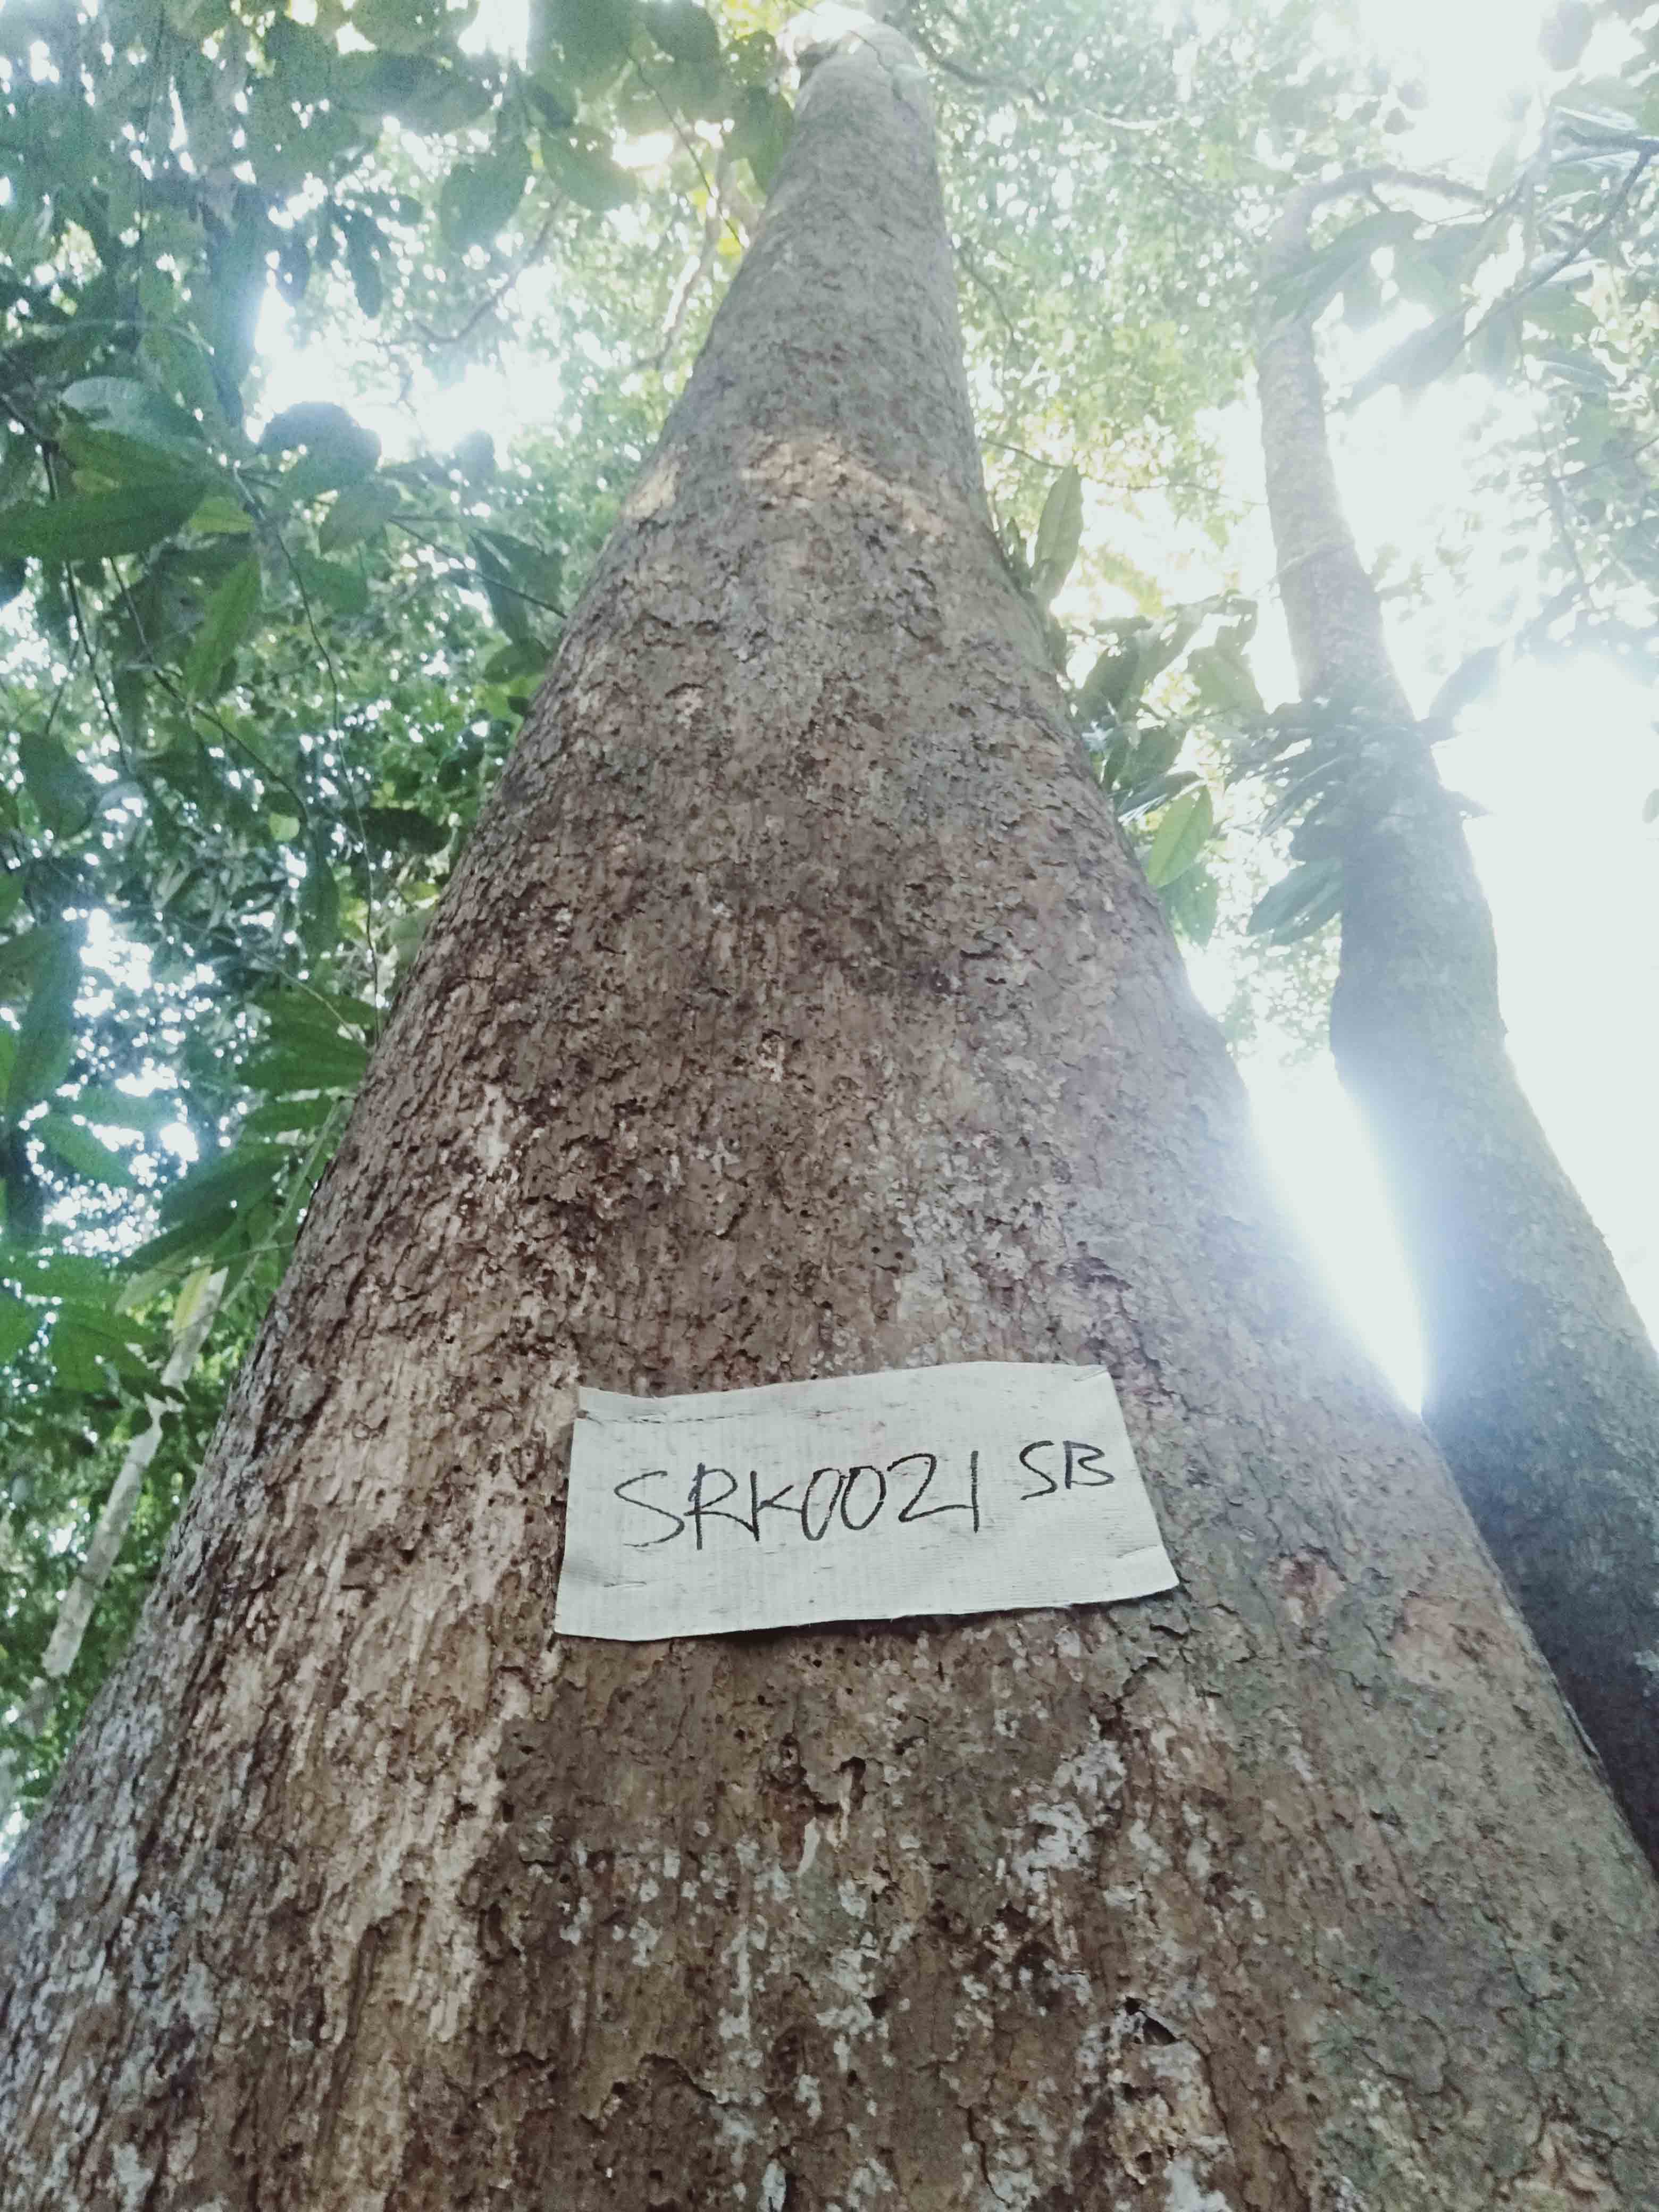 SRK0021 SB